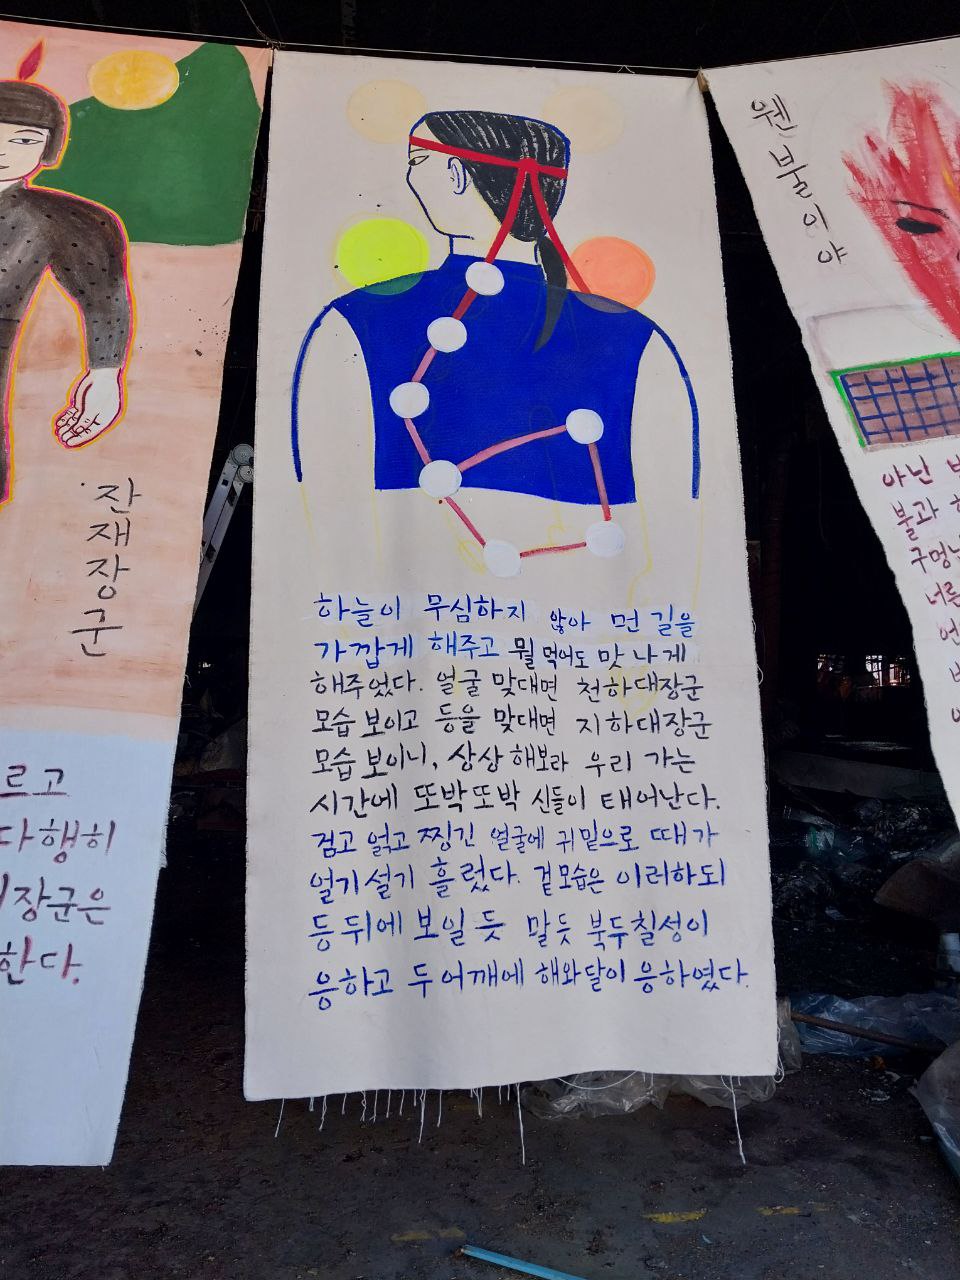 잔재장군
르고
다행히
장군은
한다.
하늘이 무심하지 않아 먼 길을
가깝게 해주고 뭘 먹어도 맛나게
해주었다. 얼굴 맞대면 천하대장군
모습 보이고 등을 맞대면 지하대장군
모습 보이니, 상상해보라 우리 가는
시간에 또박또박 신들이 태어난다.
검고 얽고 찡긴 얼굴에 귀밑으로 때가
얼기설기 흘렀다. 겉모습은 이러하되
등 뒤에 보일 듯 말듯 북두칠성이
응하고 두 어깨에 해와달이 응하였다.
웬불이야
아닌
불과
구멍
너른